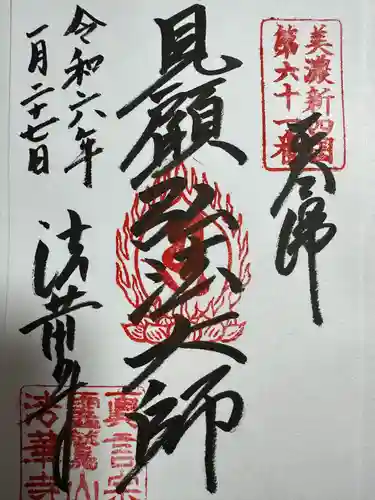 美濃新四国
第六十一番
奉拝
見願弘法大師
令和六年
一月二十七日
法華寺
真言宗
霊鷲山
法華寺